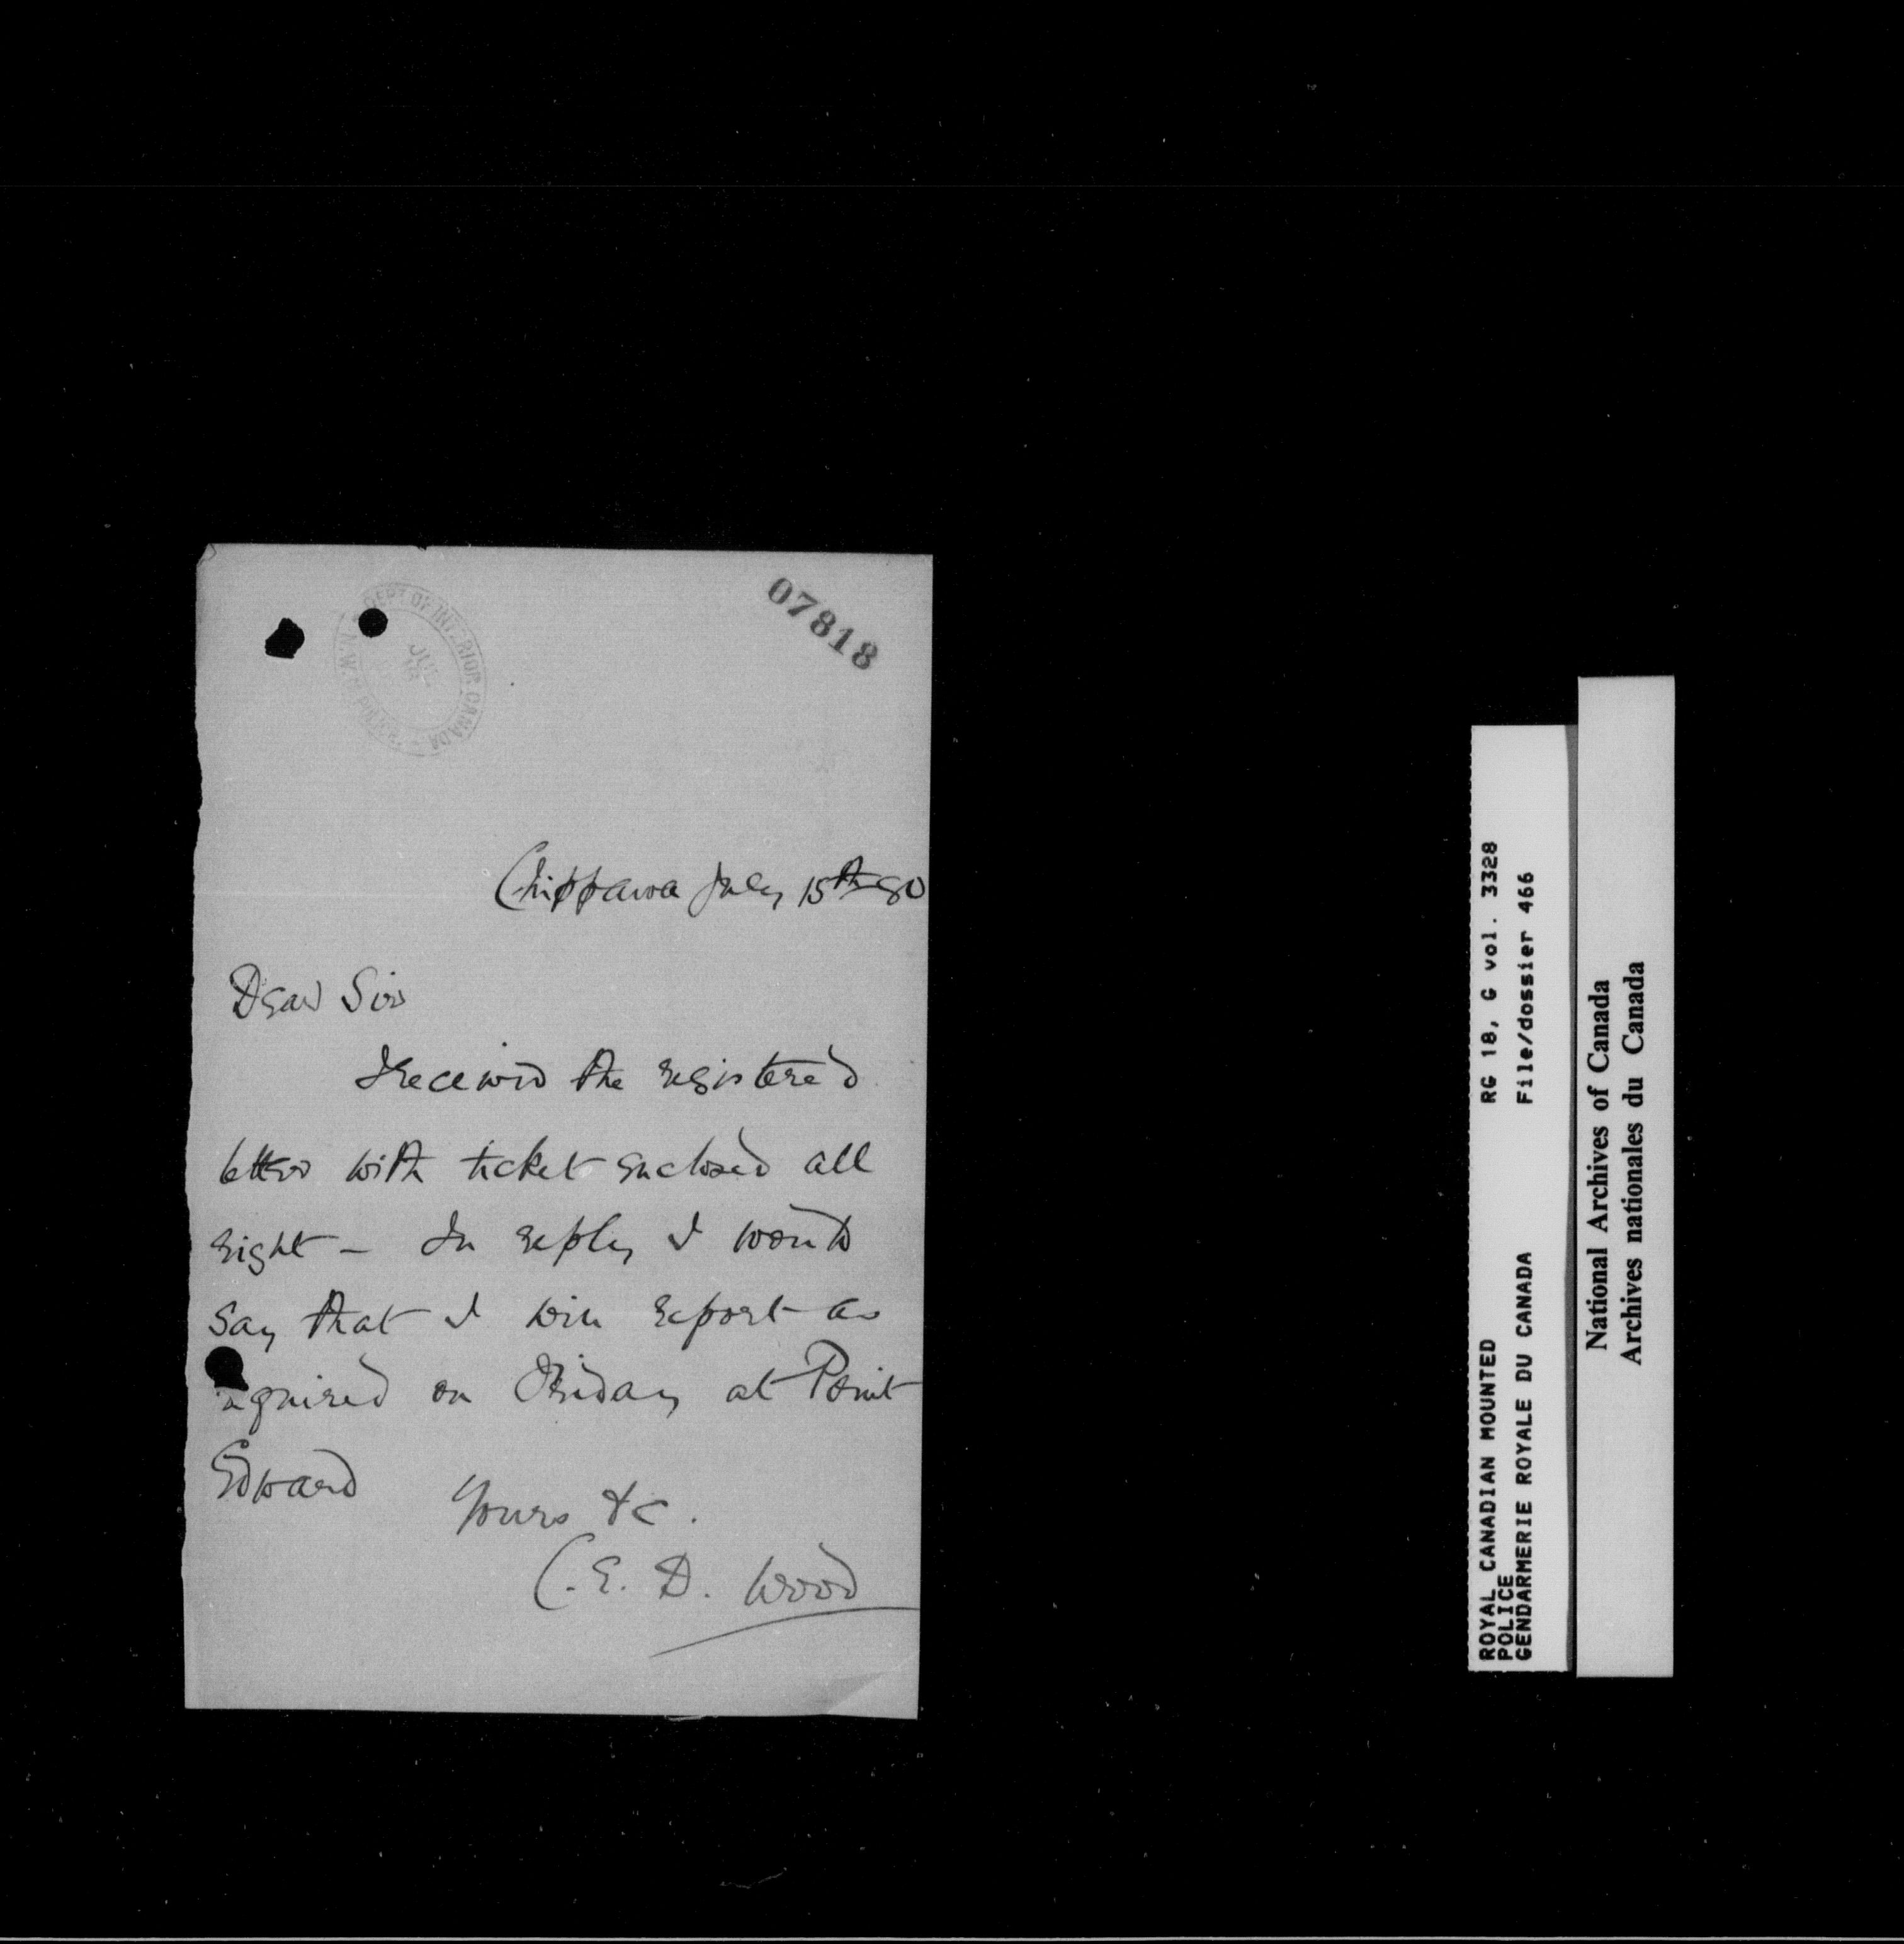 07818
DEPT OF INTERIOR CANADA
N.W.M. POLICE
JUL
Chippawa July 15th 80
Dear Sir
I received the registered
letter with ticket enclosed all
right - In reply I would
say that I will report as
required on Friday at Point
Edward
Yours &c.
C. E. D. Wood
ROYAL CANADIAN MOUNTED
POLICE
GENDARMERIE ROYALE DU CANADA
RG 18, G vol. 3328
File/dossier 466
National Archives of Canada
Archives nationales du Canada